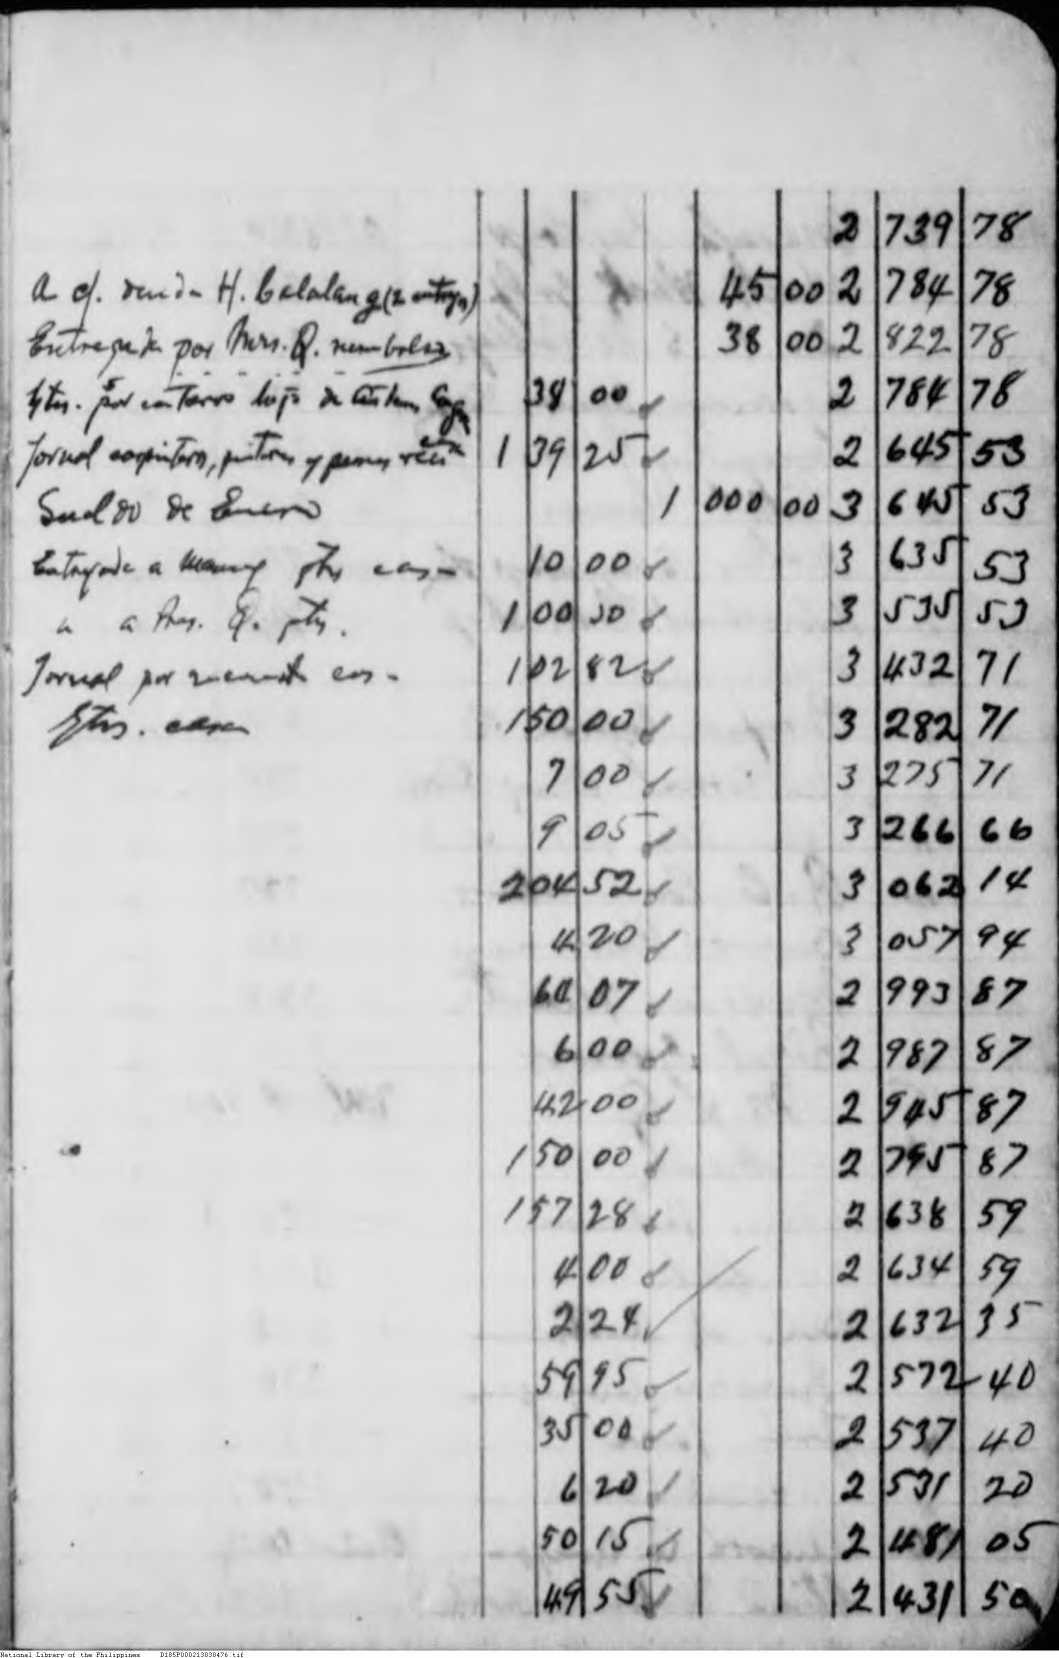 2 739 78
A c/. deuda H. Calalang (2 entregas) 45 00 2 784 78
Entregada por Mrs. Q. reembolso 38 00 2 822 78
Gtos. por bajo de 38 00 ✓ 2 784 78
Jornal carpinteros, pintores y peones 1 39 25 ✓ 2 645 53
Sueldo de Enero 1 000 00 3 645 53
Entregada a Manang gtos casa 10 00 ✓ 3 635 53
" a Mrs. Q. gtos. 1 00 00 ✓ 3 535 53
Jornal por casa 1 02 82 ✓ 3 432 71
Gtos. casa 1 50 00 ✓ 3 282 71
7 00 ✓ 3 275 71
9 05 ✓ 3 266 66
2 04 52 ✓ 3 062 14
4 20 ✓ 3 057 94
64 07 ✓ 2 993 87
6 00 ✓ 2 987 87
42 00 ✓ 2 945 87
1 50 00 ✓ 2 795 87
1 57 28 ✓ 2 638 59
4 00 ✓ 2 634 59
2 24 ✓ 2 632 35
59 95 ✓ 2 572 40
35 00 ✓ 2 537 40
6 20 ✓ 2 531 20
50 15 ✓ 2 481 05
49 55 ✓ 2 431 50
National Library of the Philippines D185P000213838476.tif